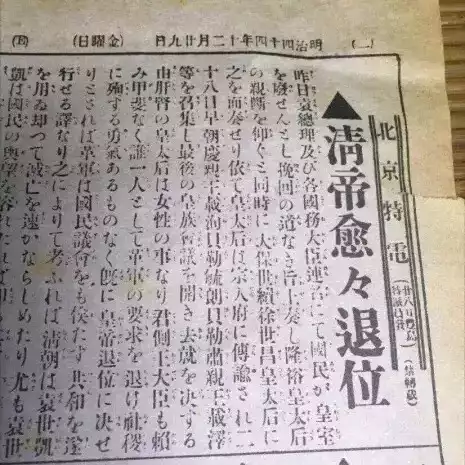 (二) 明治四十四年十二月廿九日 (金曜日)
北京特電
(禁轉載)
▲清帝愈々退位
昨日袁總理及び各國務大臣連名にて國民が皇室
を廢せんとし挽回の道なき旨上奏し隆裕皇太后
の親斷を仰ぐと同時に太保世續徐世昌皇太后に
之を面奏せり依て皇太后は宗人府に傳諭され二
十八日早朝慶親王載洵貝勒毓朗貝勒肅親王載澤
等を召集し最後の皇族會議を開き去就を決する
由肝腎の皇太后は女性の事なり君側王大臣も賴
み甲斐なく誰一人として革軍の要求を退け社稷
に殉する勇氣あるものなく既に皇帝退位に決せ
りとされば革軍は國民議會をも俟たず共和を遂
行せる譯なり之によりて考ふれば清朝は袁世凱
を用ゐ却つて滅亡を速かならしめたり尤も袁世
凱は國民の輿望を容れたれば